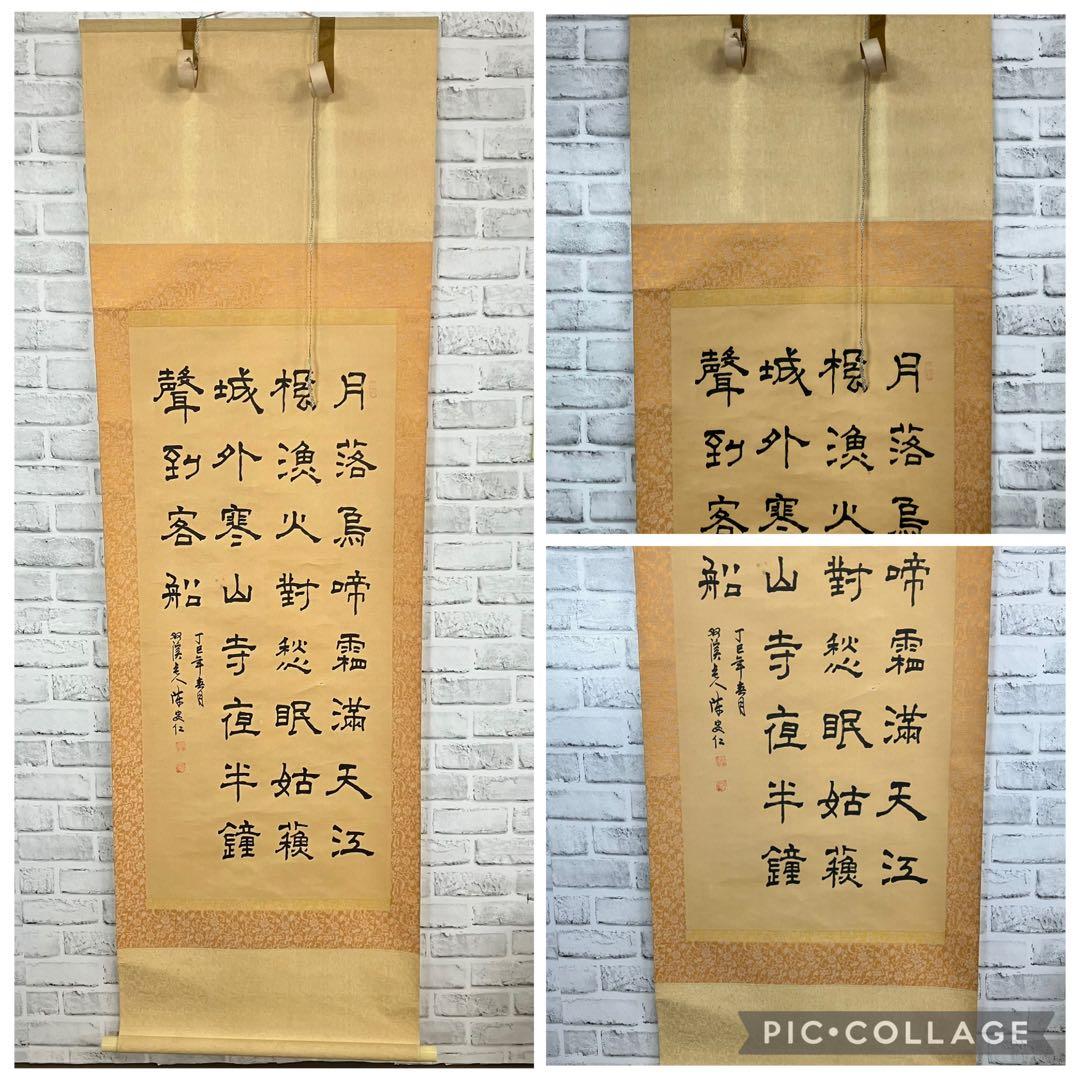 月落烏啼霜滿天江
楓漁火對愁眠姑蘇
城外寒山寺夜半鐘
聲到客船
丁巳年春月
溪老人陳安仁
月落烏
楓漁火
城外寒
聲到客
啼霜滿天江
對愁眠姑蘇
山寺夜半鐘
船
丁巳年春月
溪老人陳安仁
PIC•COLLAGE